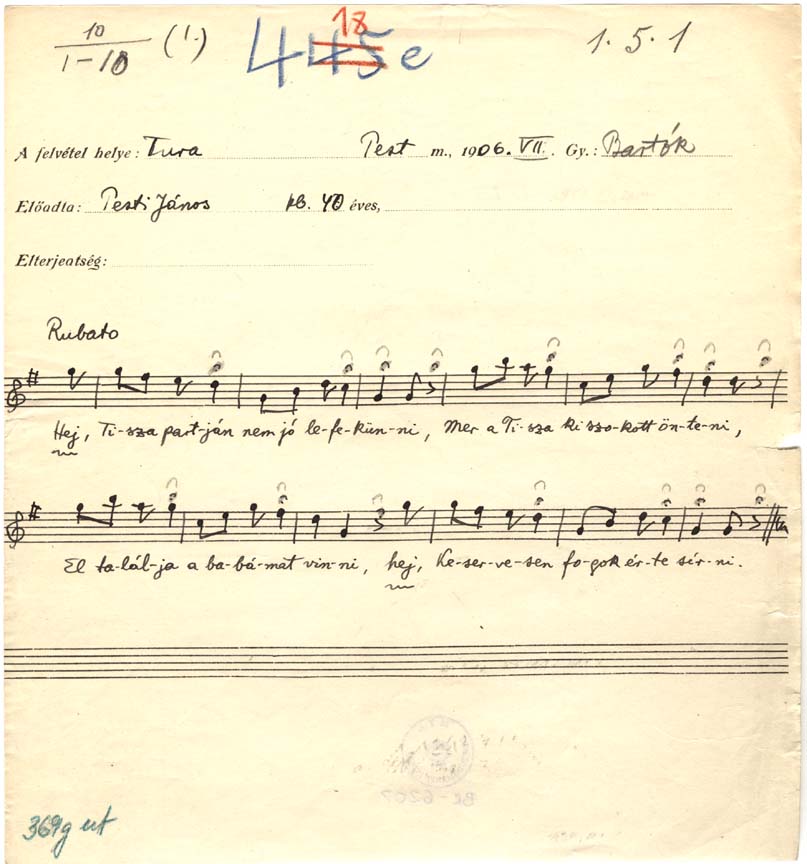 10/1-10 (1.) 18 445e 1.5.1
A felvétel helye: Tura Pest m., 1906. VII. Gy.: Bartók
Előadta: Pesti János kb. 40 éves,
Elterjedtség:
Rubato
Hej, Ti-sza part-ján nem jó le-fe-kün-ni, Mer a Ti-sza ki szo-kott ön-te-ni,
El ta-lál-ja a ba-bá-mat vin-ni, hej, Ke-ser-ve-sen fo-gok ér-te sír-ni.
369g ut